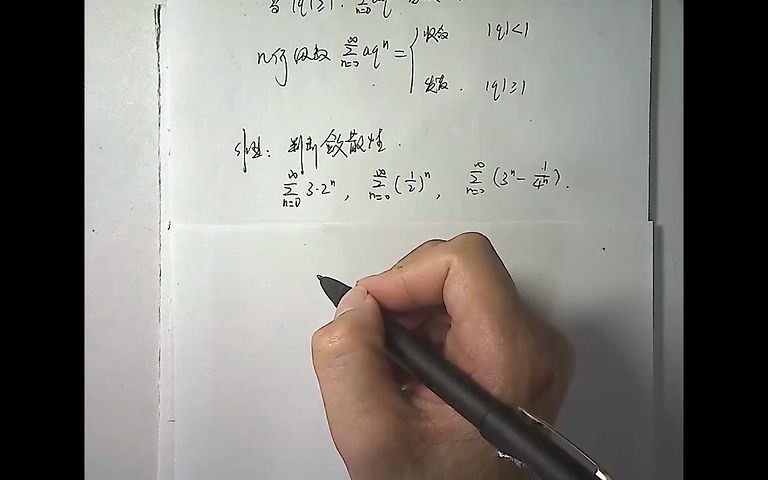 当 |q|≥1. ∑_{n=0}^{∞} aq^n
几何级数 ∑_{n=0}^{∞} aq^n = { 收敛 |q|<1
发散. |q|≥1
例题: 判断敛散性.
∑_{n=0}^{∞} 3·2^n, ∑_{n=0}^{∞} (1/2)^n, ∑_{n=0}^{∞} (3^n - 1/4^n).